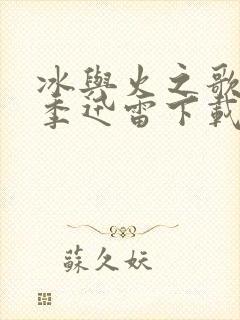 冰與火之歌
季迅雷下載
蘇久妖